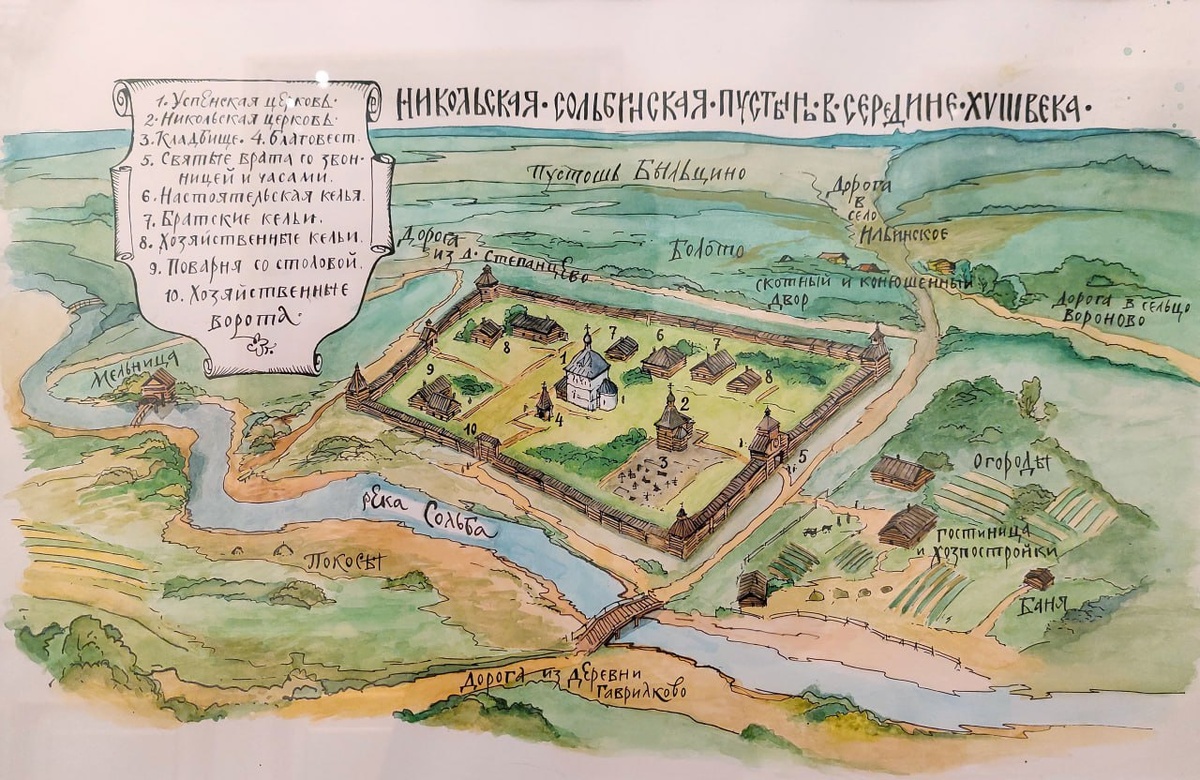 НИКОЛЬСКАЯ·СОЛЬБИНСКАЯ·ПУСТЫНЬ·В·СЕРЕДИНЕ·XVIII ВЕКА·
1. Успенская церковь.
2. Никольская церковь.
3. Кладбище. 4. Благовест
5. Святые врата со звон-
ницей и часами.
6. Настоятельская келья.
7. Братские кельи.
8. Хозяйственные кельи.
9. Поварня со столовой.
10. Хозяйственные
ворота.
Пустошь Быльщино
Дорога
в
село
Ильинское
Дорога
из д. Степанцево
Болото
скотный и конюшенный
двор
Дорога в сельцо
Вороново
Мельница
8
1
7
6
7
8
9
4
2
10
3
5
Огороды
река Сольба
гостиница
и хозпостройки
Покосы
Баня
Дорога из деревни
Гаврилково